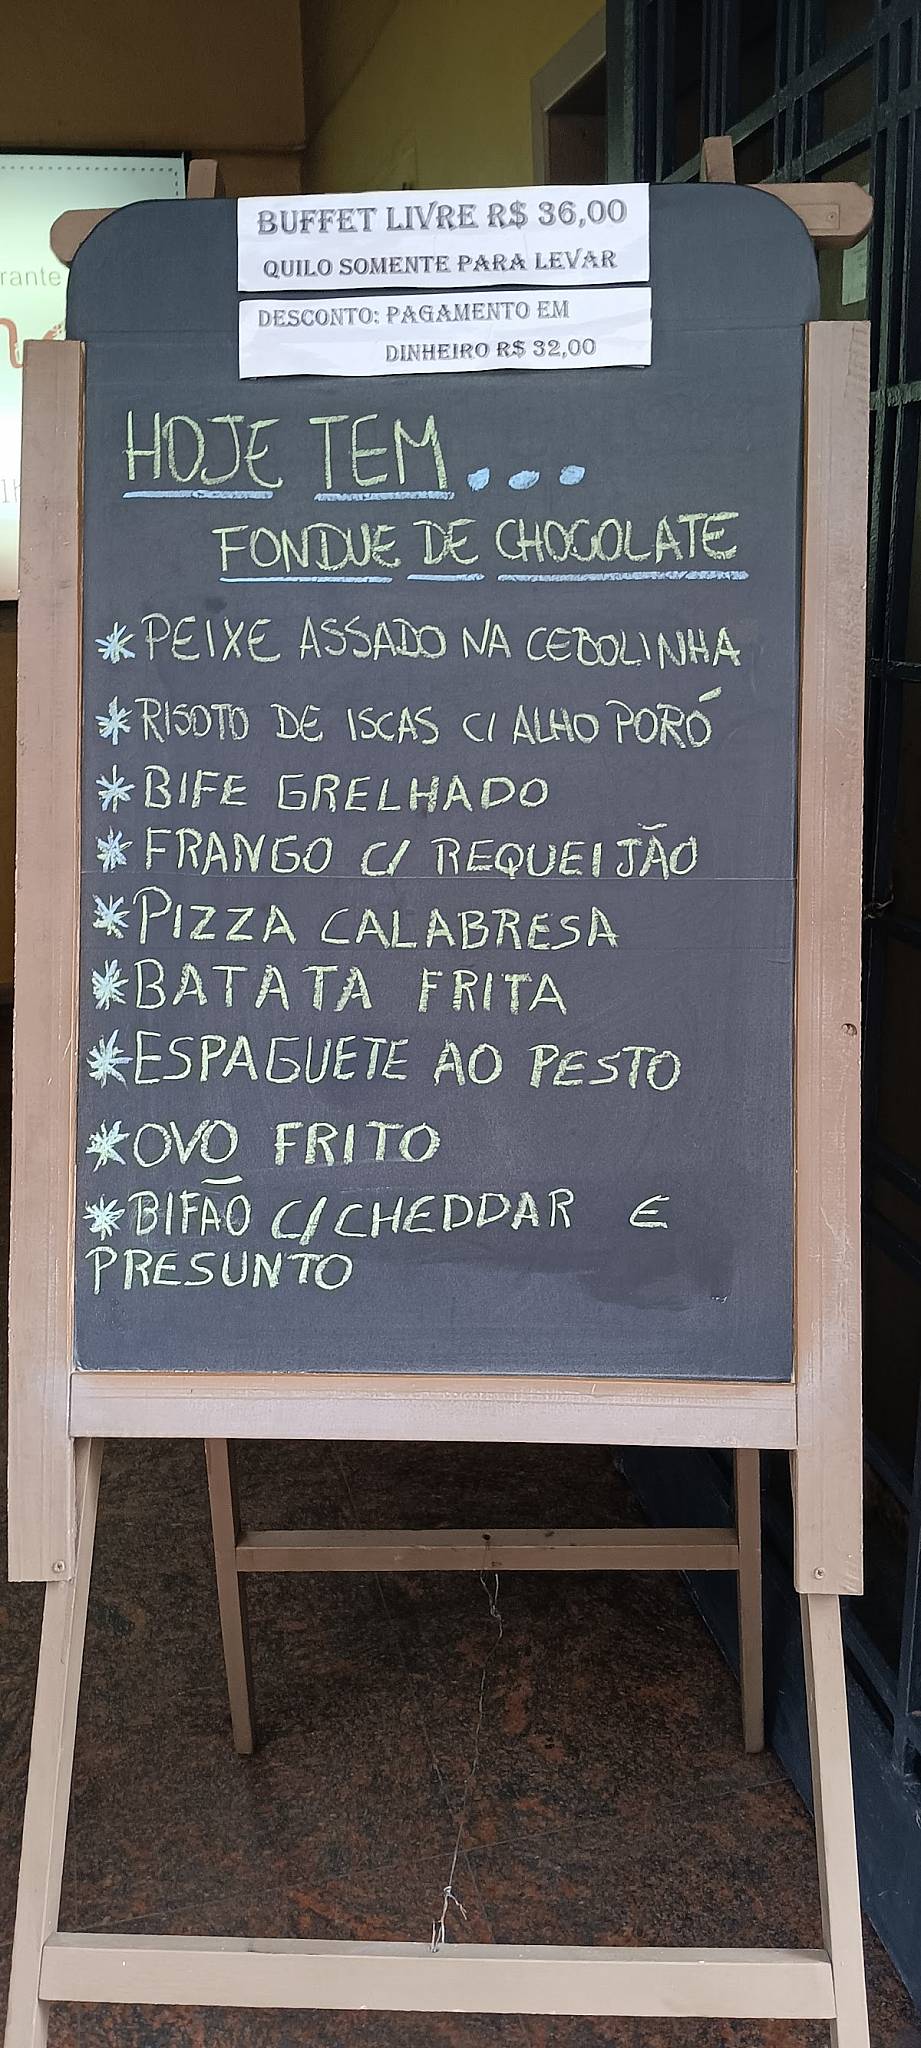 BUFFET LIVRE R$ 36,00
QUILO SOMENTE PARA LEVAR
DESCONTO: PAGAMENTO EM
DINHEIRO R$ 32,00
HOJE TEM...
FONDUE DE CHOCOLATE
* PEIXE ASSADO NA CEBOLINHA
* RISOTO DE ISCAS C/ ALHO PORÓ
* BIFE GRELHADO
* FRANGO C/ REQUEIJÃO
* PIZZA CALABRESA
* BATATA FRITA
* ESPAGUETE AO PESTO
* OVO FRITO
* BIFÃO C/ CHEDDAR E
PRESUNTO